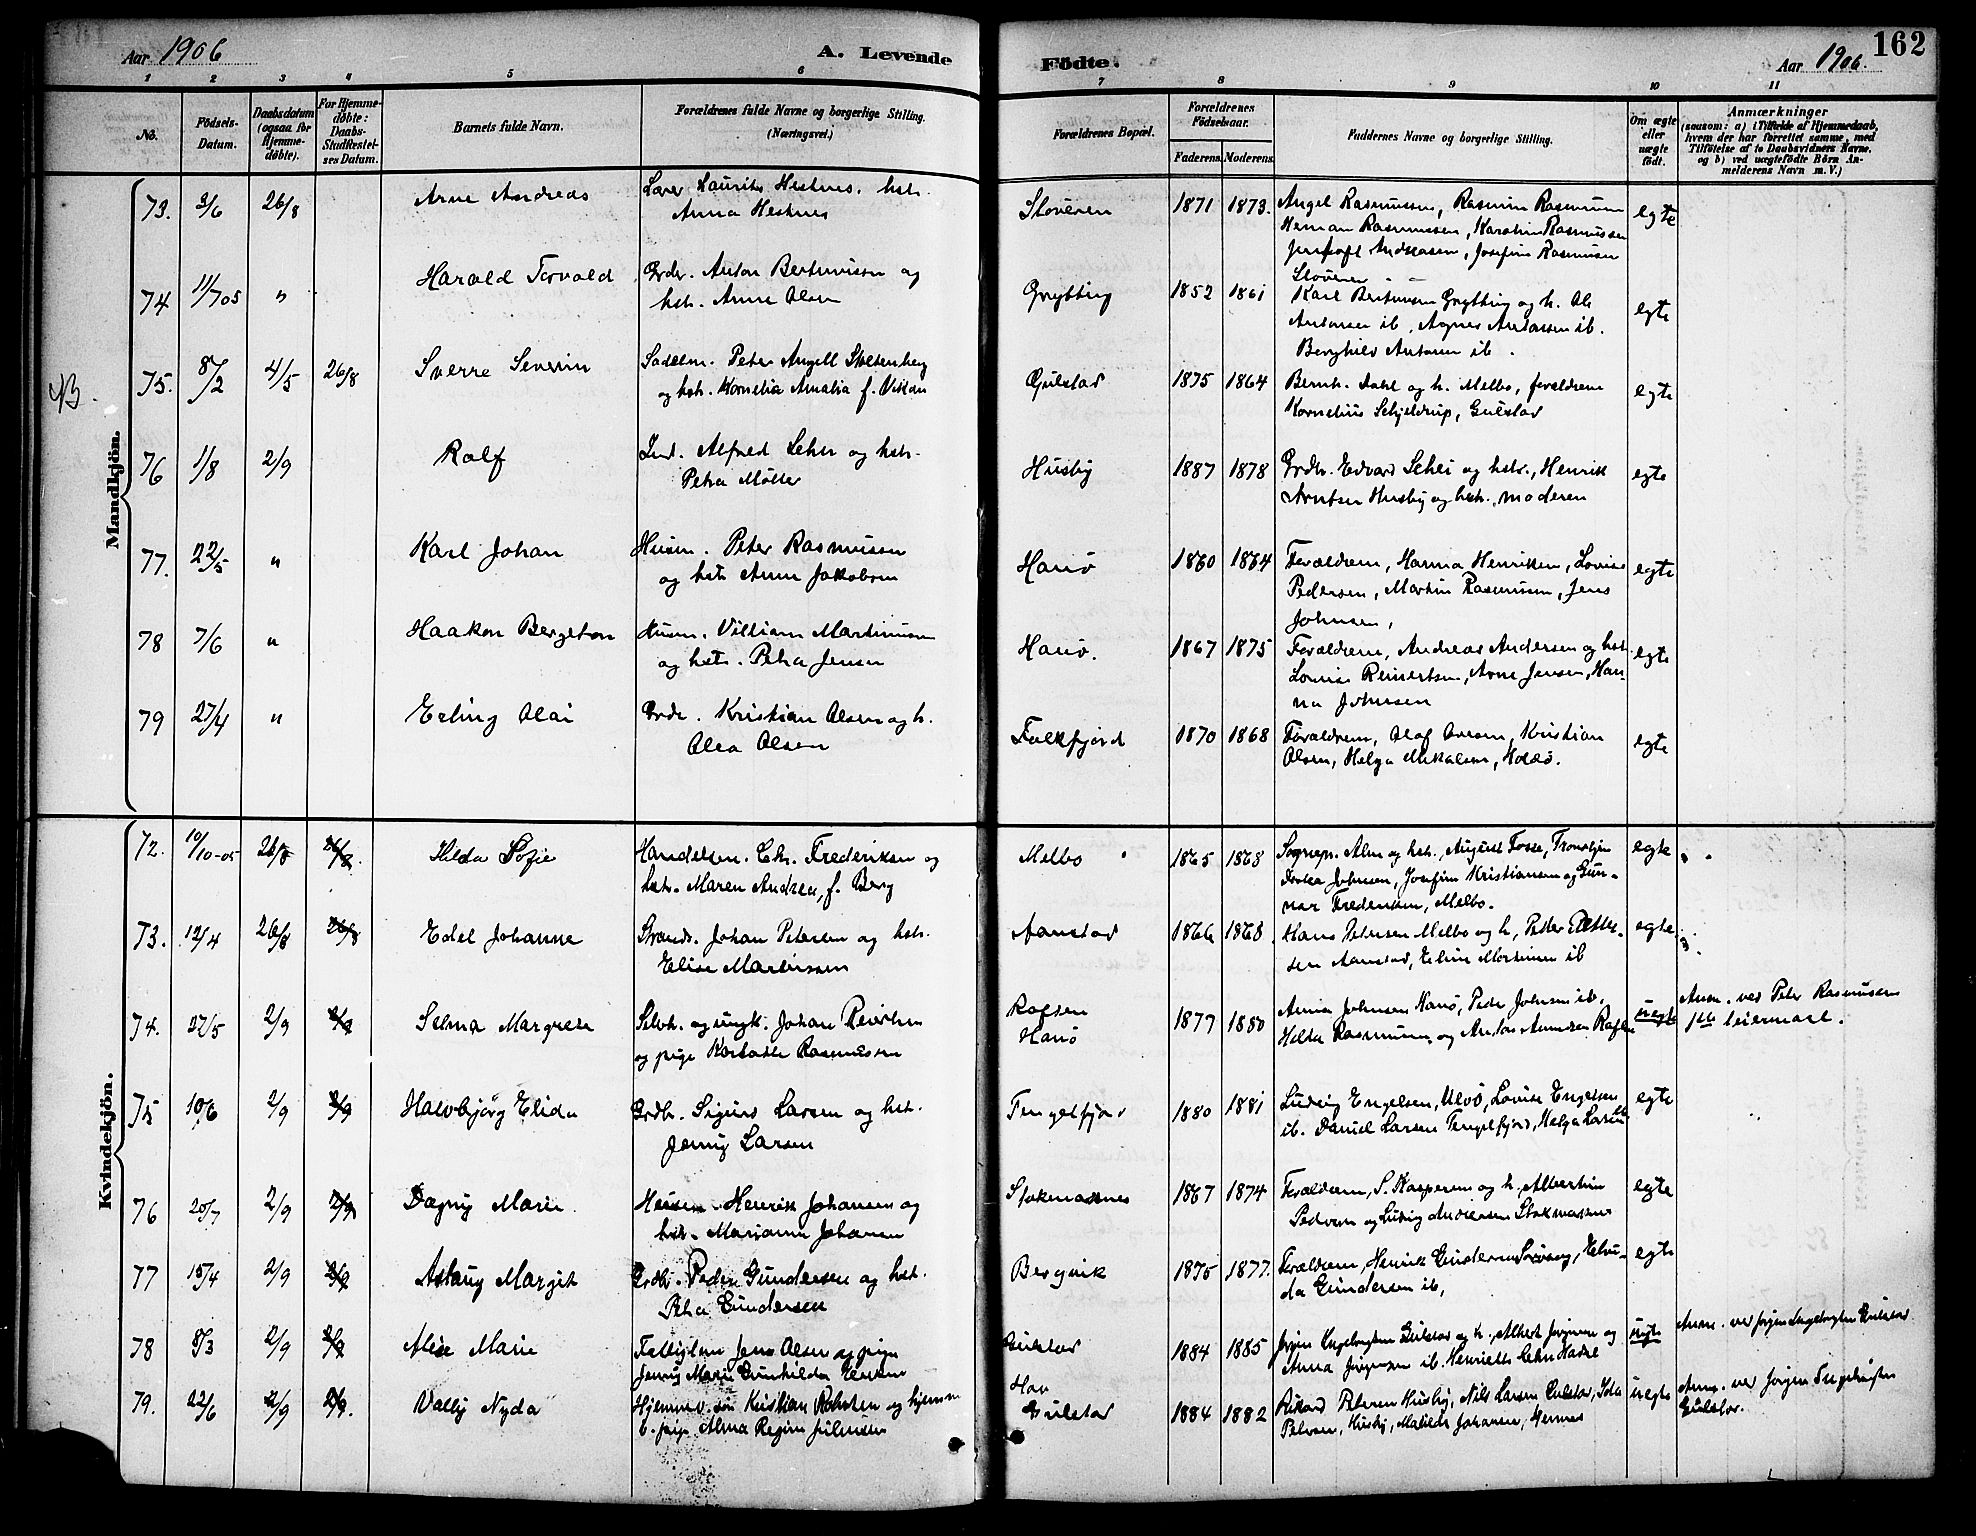 Aar 1906
A. Levende
Födte.
Aar 1906.
162
1 2 3 4 5 6 7 8 9 10 11
No.
Födsels-
Datum.
Daabsdatum
(ogsaa for
Hjemme-
döbte).
For Hjemme-
döbte:
Daabs-
Stadfæstel-
ses Datum.
Barnets fulde Navn.
Forældrenes fulde Navne og borgerlige Stilling.
(Næringsvei.)
Forældrenes Bopæl.
Forældrenes
Födselsaar.
Faderens. Moderens.
Faddernes Navne og borgerlige Stilling.
Om ægte
eller
uægte
födt.
Anmærkninger
(saasom: a) i Tilfælde af Hjemmedaab,
hvem der har forrettet samme, med
Tilföielse af to Daabsvidners Navne,
og b) ved uægtefödte Börn An-
melderens Navn m. V.)
Mandkjön.
73. 3/6 26/8 Arne Andreas
Laurits Hestnes. hstr.
Anna Hestnes
Stoveren 1871 1873.
Angel Rasmussen, Rasmus Rasmussen
Herman Rasmussen, Rasmussen
Andreasen, Josefine Rasmussen
egte
74 11/7 05 " Harald Torvald
Grdbr. Anton Bertinussen og
hstr. Anne Olsen
Grytting 1852 1861
Karl Bertinussen Grytting og h. Ole
Antonsen ib, Agnes Antonsen ib.
Berghild Antonsen ib.
egte
75. 8/2 4/5 26/8 Sverre Severin
Sadelm. Peter Angell Stoltenberg
og hstr. Kornelia Amalia f.
Gulstad 1875 1864
Bernh. Dahl og h. Melbo, forældrene
Kornelius Schjelderup, Gulstad
egte
76 1/8 2/9 Rolf
Alfred Schei og hstr.
Petra Möller
Husby 1887 1878
Grdbr. Edvard Schei og hstr., Henrik
Arntsen Husby og hstr., moderen
egte
77. 22/5 " Karl Johan
Husm. Peter Rasmussen
og hstr Anne Jakobsen
Hanö 1860 1864
Forældrene, Hanna Henriksen, Lovise
Pedersen, Martin Rasmussen, Jens
Johnsen,
egte
78 7/6 " Haakon Bergeton
Husm. Villiam Martinussen
og hstr. Petra Jensen
Hanö. 1867 1875
Forældrene, Andreas Andersen og hstr
Lovise Reinertsen, Arne Jensen, Han-
na Johnsen
egte
79 27/4 " Erling Olai
Grdbr. Kristian Olsen og h.
Olea Olsen
Falkfjord 1870 1868
Forældrene, Olaf Olsen, Kristian
Olsen, Helga Mikalsen, Holdö.
egte
Kvindekjön.
72. 10/10-05 26/8 26/8. Hilda Sofie
Handelsm. Chr. Frederiksen og
hstr. Maren Andrea, f. Berg
Melbo 1865 1868
Sognepr. Alm og hstr., August Fosse, Trondhjem
Johnsen, Josefine Kristiansen og Gun-
nar Frederiksen, Melbo.
egte
73. 12/4 26/8 26/8 Edel Johanne
Strands. Johan Petersen og hstr.
Elise Martinssen
Aanstad 1866 1868
Hans Petersen Melbo og h, Peder Petter-
sen Aanstad, Eline Martinsen ib
egte
74. 27/5 2/9 2/9 Selma Margrete
Selvh. og ungk. Johan
og pige Rasmussen
Raftsen
Hanö
1877 1880
Anna Johnsen Hanö, Peder Johnsen ib,
Helda Rasmussen og Anton Amundsen
uegte
Anm. ved Peter Rasmussen
1ste leiermaal.
75 10/6 2/9 2/9 Halvbjörg Elida
Grdbr. Sigurd Larsen og hstr.
Jenny Larsen
Tengelfjord 1880 1881
Ludvig Engelsen, Ulvö, Lovise Engelsen
ib. Daniel Larsen Tengelfjord, Helga Larsen ib
egte
76 20/7 2/9 2/9 Dagny Marie
Husm. Henrik Johansen og
hstr. Marianne Johansen
Stokmarknes 1867 1874
Forældrene, S. Kaspersen og h, Albertine
Pedersen og Ludvig Andersen Stokmarknes
egte
77 15/4 2/9 2/9 Aslaug Margit
Grdbr. Peder Gundersen og hstr.
Petra Gundersen
Bergvik 1875 1877.
Forældrene, Henrik Gundersen, Elvi-
da Gundersen ib,
egte
78 8/3 2/9 2/9 Alise Marie
Jens Olsen og pige
Jenny Marie Gunhilda
Gulstad 1884 1885
Jörgen Ingebrigtsen Gulstad og h., Albert Jörgensen og
Anna Jörgensen ib. Henriette
uegte
Anm. ved Jörgen Ingebrigtsen Gulstad
79. 22/6 2/9 2/9. Vally Nyda
sön Kristian og hjemmev.
pige Alma Regine
Gulstad 1884 1882
Rikard Petersen Husby, Nils Larsen Gulstad, Ida
Petersen, Husby, Matilde Johansen,
uegte
Anm. ved Jörgen Ingebrigtsen
Gulstad.